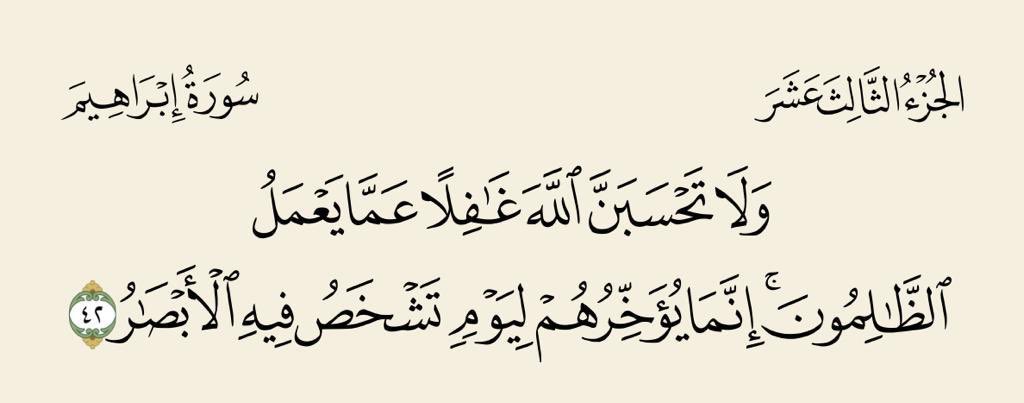 الجُزْءُ الثَّالِثَ عَشَرَ
سُورَةُ إِبْرَاهِيمَ
وَلَا تَحْسَبَنَّ ٱللَّهَ غَٰفِلًا عَمَّا يَعْمَلُ
ٱلظَّٰلِمُونَ ۚ إِنَّمَا يُؤَخِّرُهُمْ لِيَوْمٍ تَشْخَصُ فِيهِ ٱلْأَبْصَٰرُ ٤٢